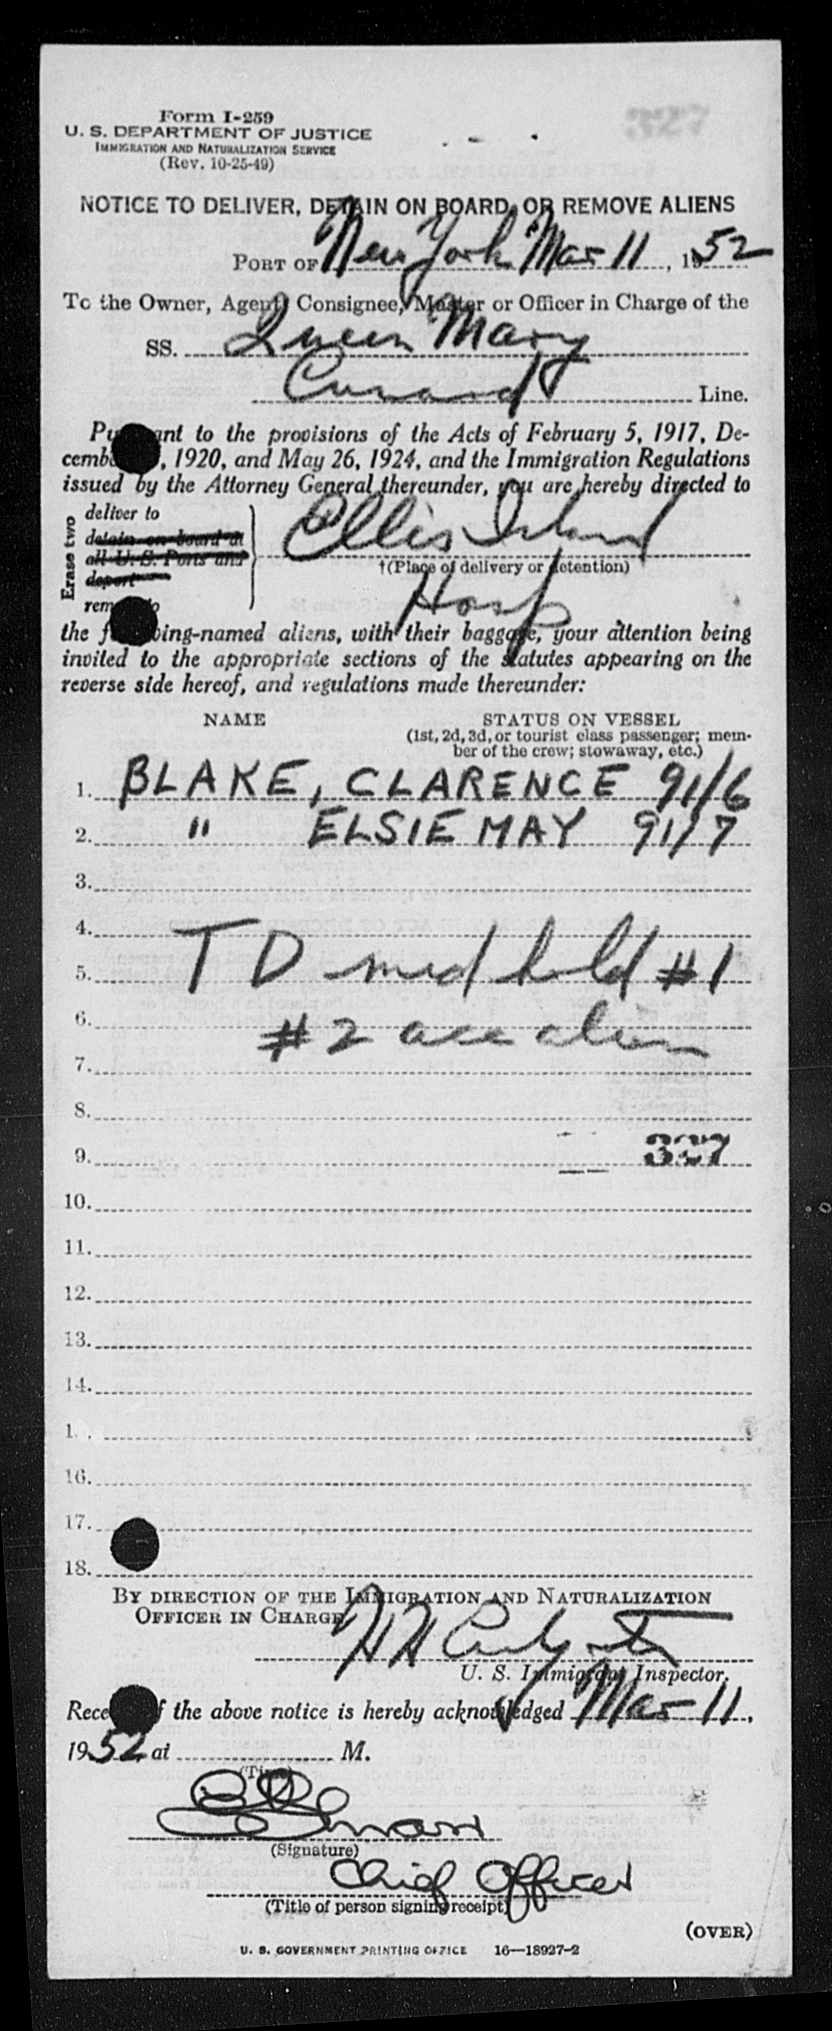 Form I-259
327
U. S. DEPARTMENT OF JUSTICE
IMMIGRATION AND NATURALIZATION SERVICE
(Rev. 10-25-49)
NOTICE TO DELIVER, DETAIN ON BOARD, OR REMOVE ALIENS
PORT OF New York Mar 11, 1952
To the Owner, Agent, Consignee, Master or Officer in Charge of the
SS. Queen Mary
Cunard Line.
Pursuant to the provisions of the Acts of February 5, 1917, De-
cember, 1920, and May 26, 1924, and the Immigration Regulations
issued by the Attorney General thereunder, you are hereby directed to
Erase two
deliver to
detain on board at
all U. S. Ports and
deport
remove to
Ellis Island
†(Place of delivery or detention)
Hosp
the following-named aliens, with their baggage, your attention being
invited to the appropriate sections of the statutes appearing on the
reverse side hereof, and regulations made thereunder:
NAME STATUS ON VESSEL
(1st, 2d, 3d, or tourist class passenger; mem-
ber of the crew; stowaway, etc.)
1. BLAKE, CLARENCE 91/6
2. " ELSIE MAY 91/7
3.
4.
5. T D med hold #1
6. #2 acc alien
7.
8.
9. 327
10.
11.
12.
13.
14.
1.
16.
17.
18.
BY DIRECTION OF THE IMMIGRATION AND NATURALIZATION
OFFICER IN CHARGE
U. S. Immigrant Inspector.
Receipt of the above notice is hereby acknowledged Mar 11,
1952, at M.
(Time)
(Signature)
Chief Officer
(Title of person signing receipt)
(OVER)
U. S. GOVERNMENT PRINTING OFFICE 16—18927-2